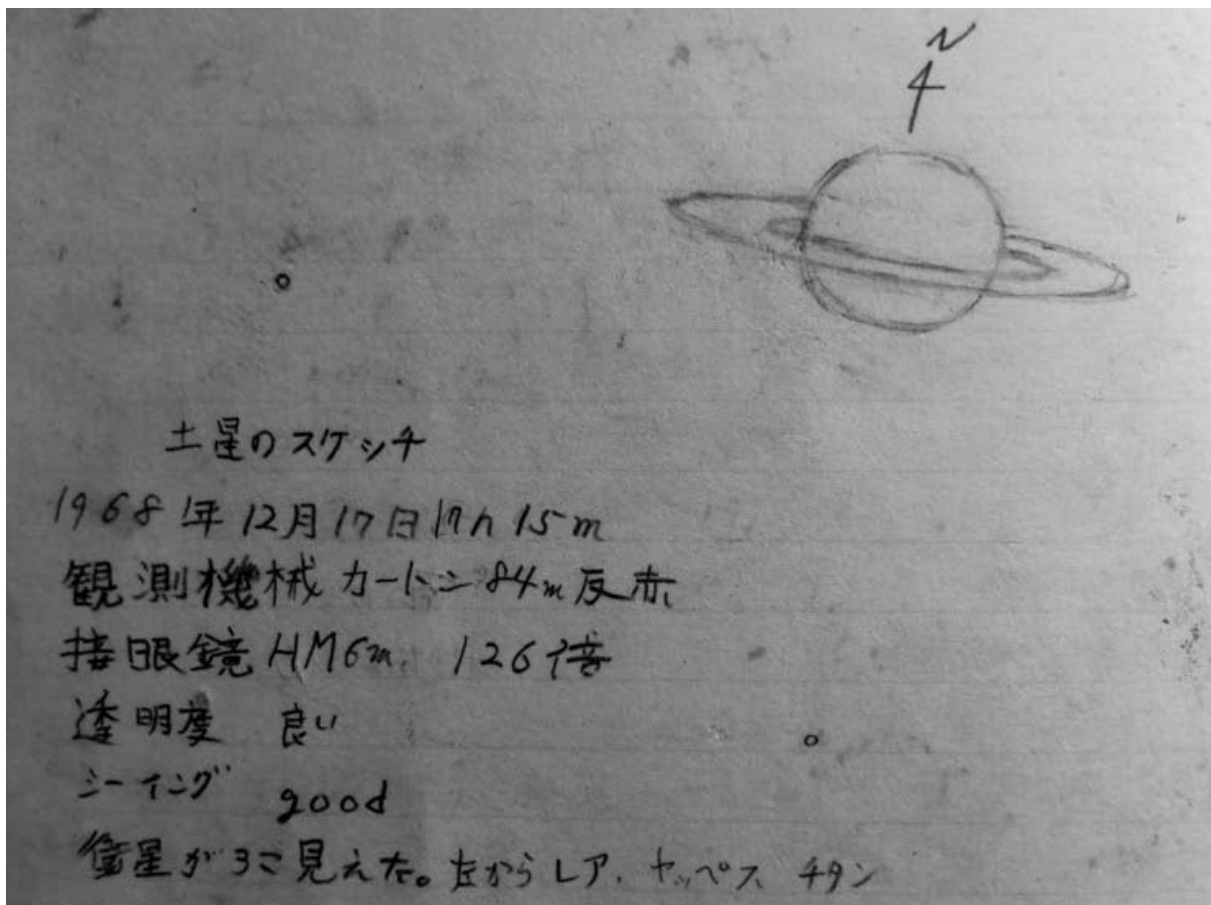 N
土星のスケッチ
1968年12月17日 17h 15m
観測機械 カートン84m反赤
接眼鏡 HM6m 126倍
透明度 良い
シーイング good
衛星が3こ見えた。左からレア、ヤッペス、チタン